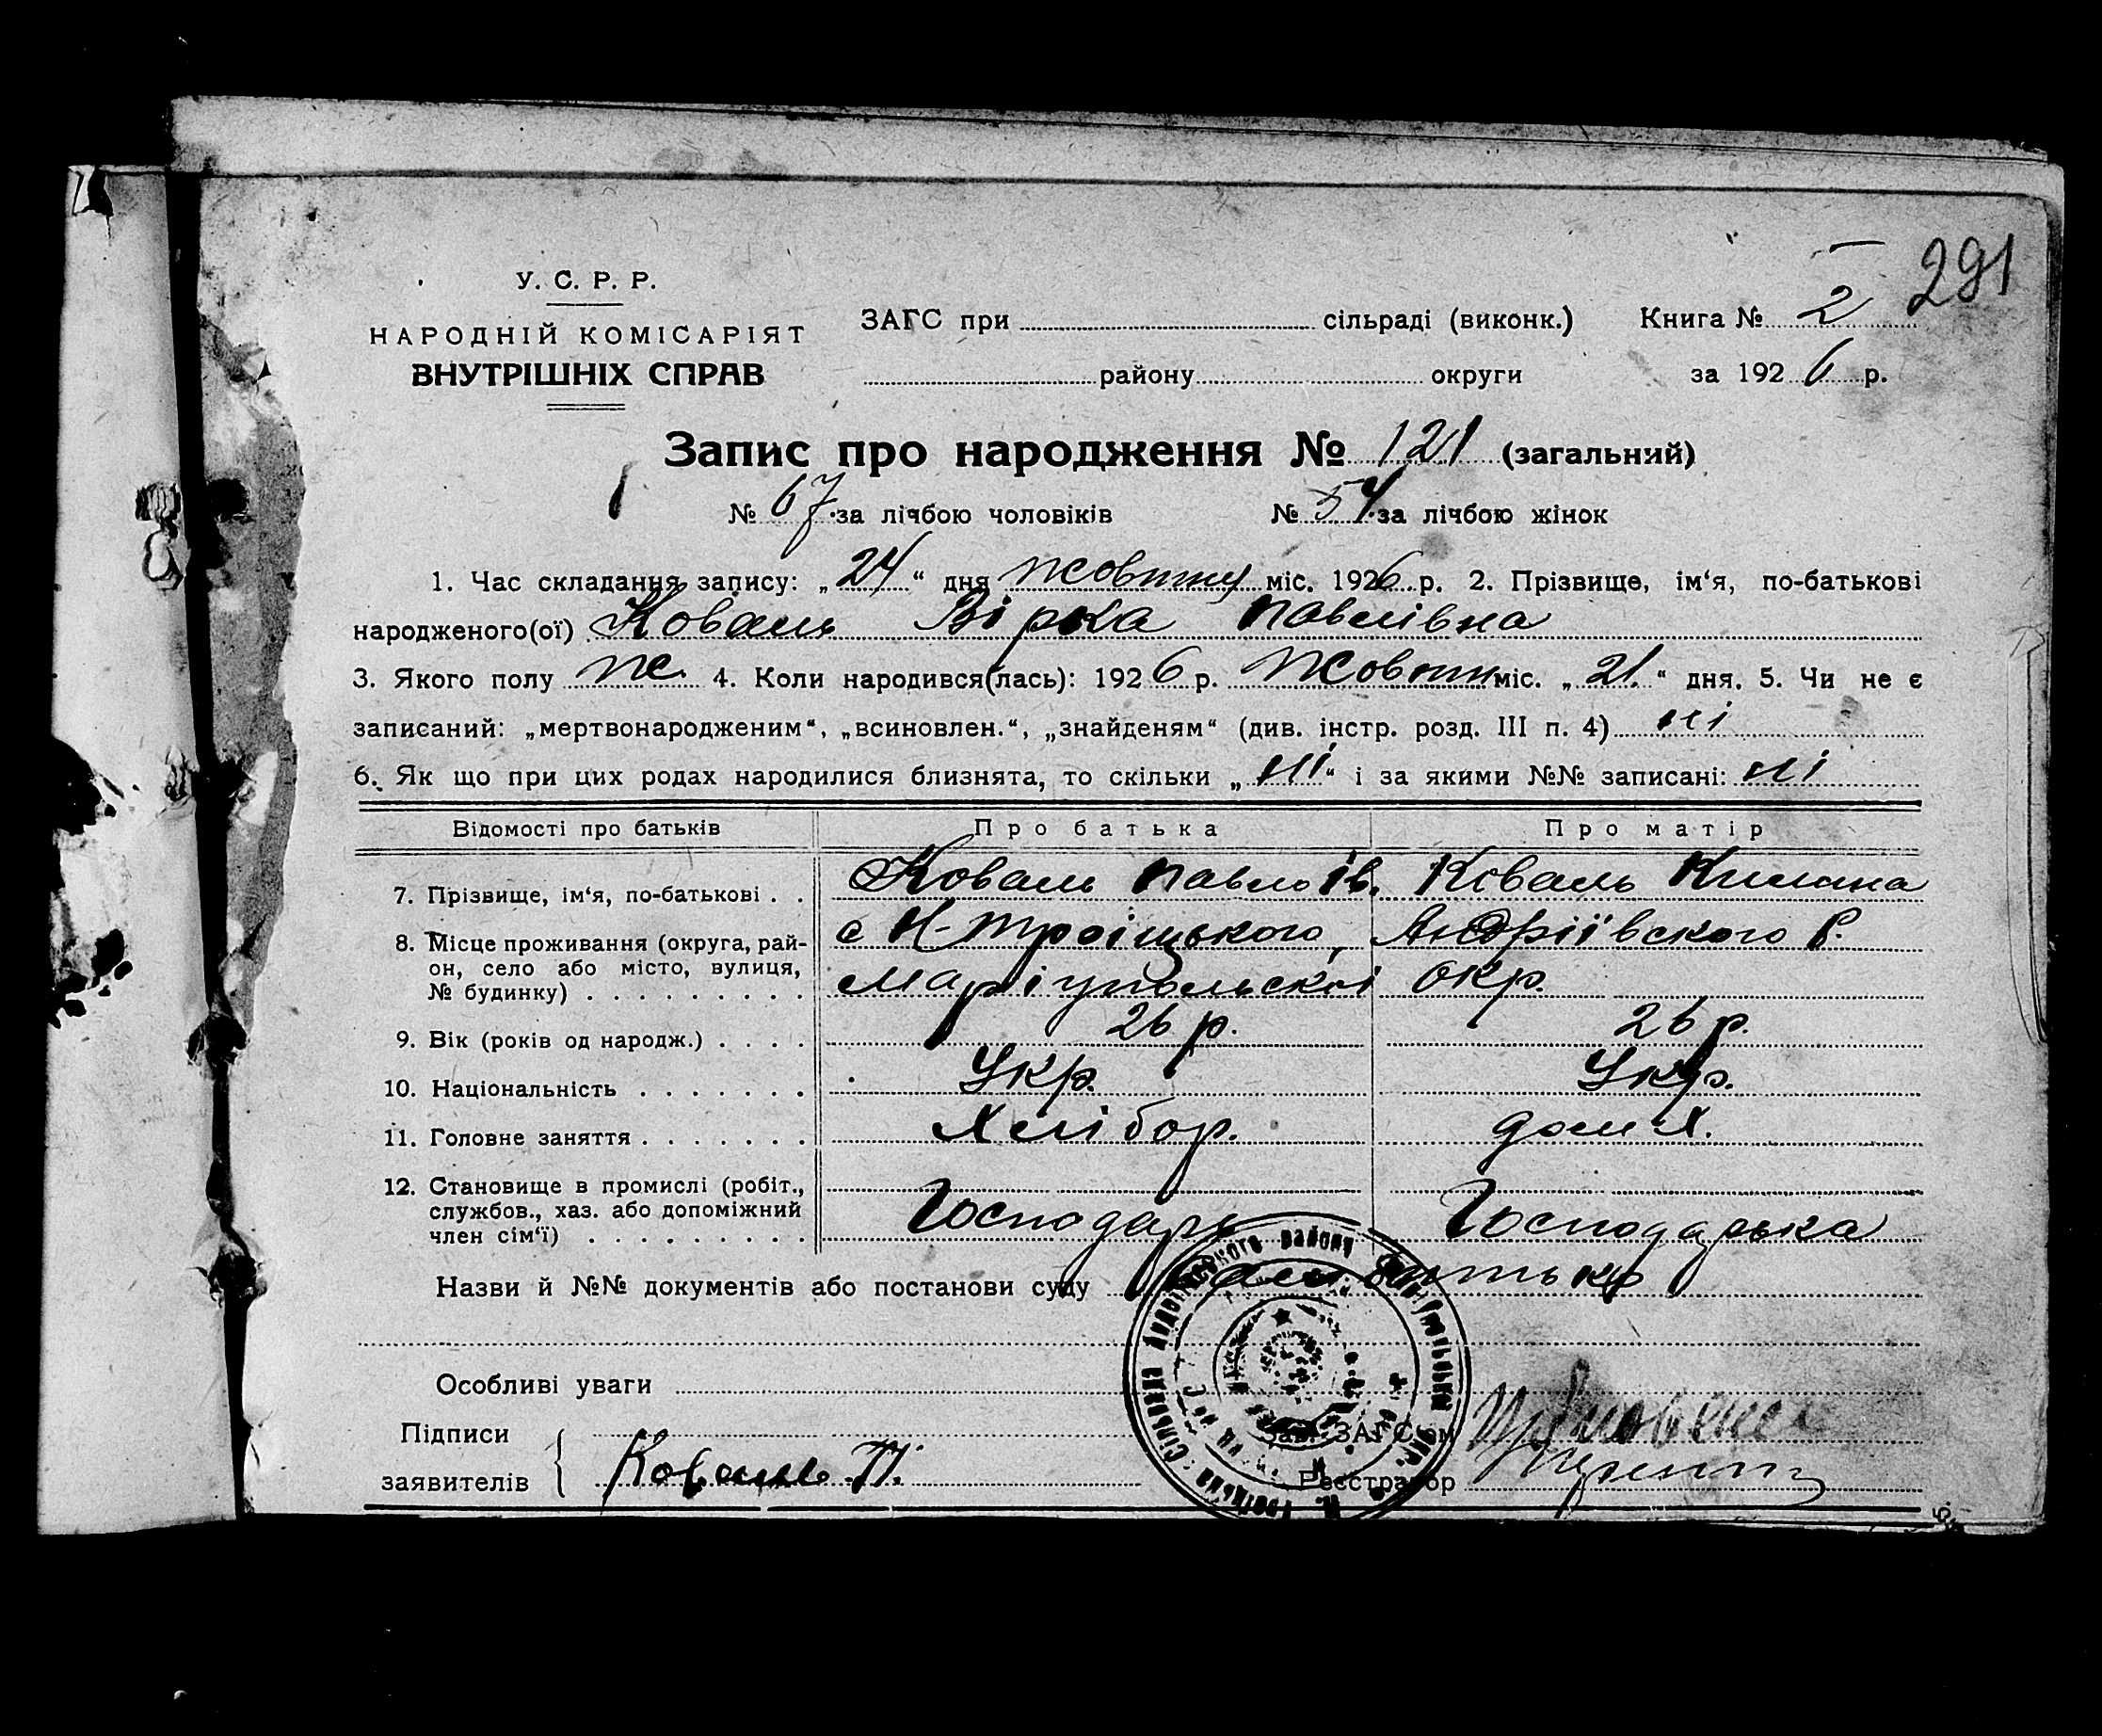 291
У. С. Р. Р.
НАРОДНІЙ КОМІСАРІЯТ
ВНУТРІШНІХ СПРАВ
ЗАГС при сільраді (виконк.) Книга № 2
району округи за 1926 р.
Запис про народження № 121 (загальний)
№ 67 за лічбою чоловіків № 54 за лічбою жінок
1. Час складання запису: „24“ дня жовтня міс. 1926 р. 2. Прізвище, ім‘я, по-батькові
народженого(ої) Коваль Вірка Павлівна
3. Якого полу ж. 4. Коли народився(лась): 1926 р. Жовтн міс. „21.“ дня. 5. Чи не є
записаний: „мертвонародженим“, „всиновлен.“, „знайденям“ (див. інстр. розд. III п. 4) ні
6. Як що при цих родах народилися близнята, то скільки „ні“ і за якими №№ записані: ні
Відомості про батьків Про батька Про матір
7. Прізвище, ім‘я, по-батькові . . Коваль Павло Ів. Коваль
8. Місце проживання (округа, рай- с Н-Троіцького, Андріївского Р.
он, село або місто, вулиця, Маріупольскоі окр.
№ будинку) . . . . . . . . .
9. Вік (років од народж.) . . . . 26 р. 26 р.
10. Національність . . . . . . . Укр. Укр.
11. Головне заняття . . . . . . . Хлібор. дом Х.
12. Становище в промислі (робіт.,
службов., хаз. або допоміжний Господарь Господарька
член сім‘ї) . . . . . . . . .
Назви й №№ документів або постанови суду
Особливі уваги
Підписи Зав. ЗАГС‘ом
заявителів Коваль П. Реєстратор